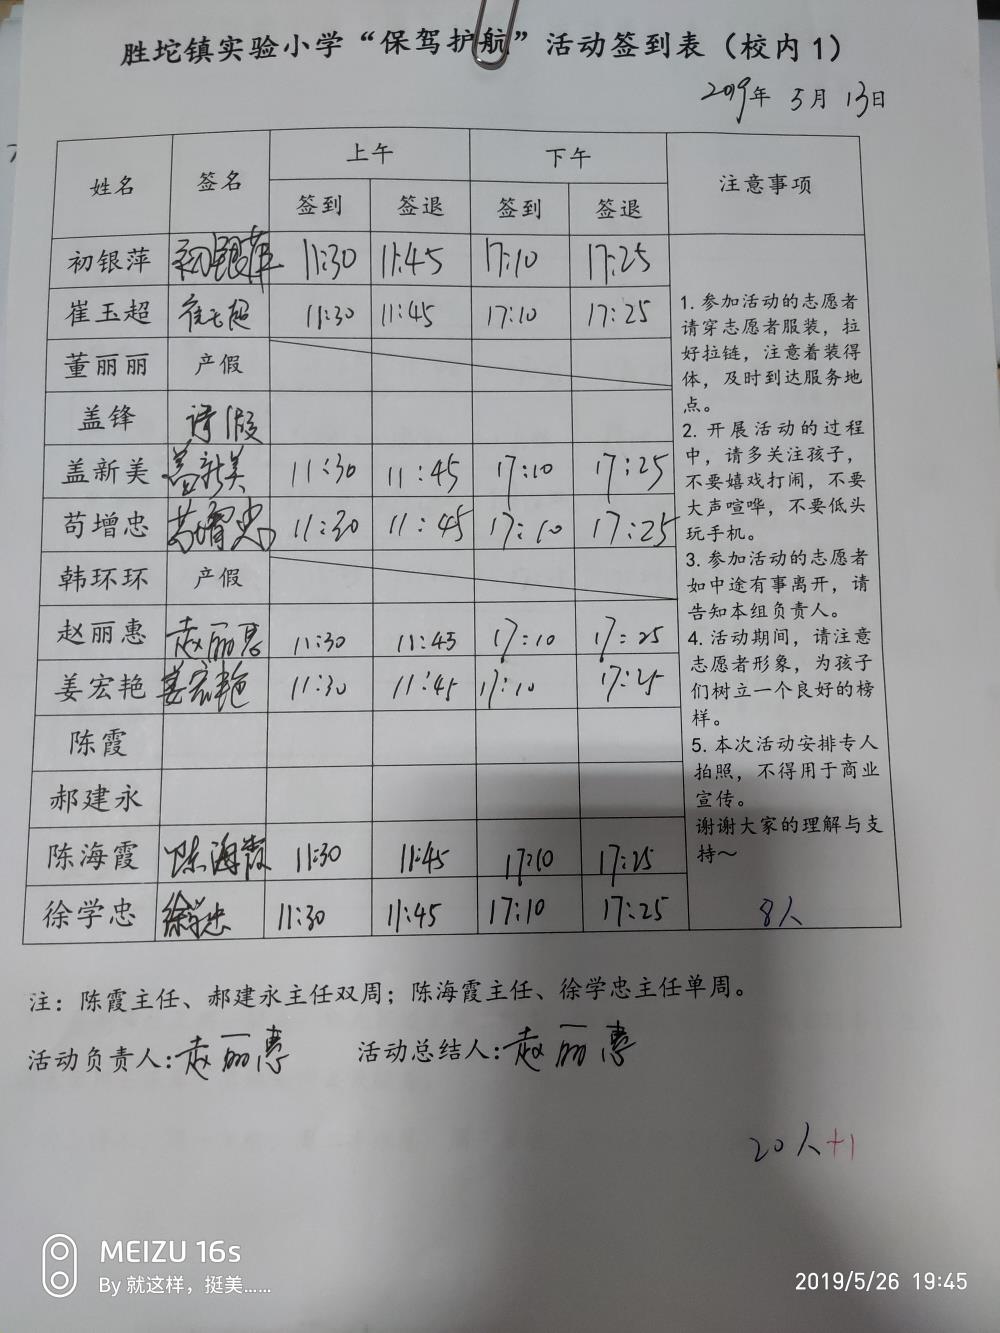 胜坨镇实验小学“保驾护航”活动签到表（校内1）
2019年 5月 13日
姓名 签名 上午 下午 注意事项
签到 签退 签到 签退
初银萍 初银萍 11:30 11:45 17:10 17:25
崔玉超 崔玉超 11:30 11:45 17:10 17:25
董丽丽 产假
盖锋 请假
盖新美 盖新美 11:30 11:45 17:10 17:25
苟增忠 苟增忠 11:30 11:45 17:10 17:25
韩环环 产假
赵丽惠 赵丽惠 11:30 11:45 17:10 17:25
姜宏艳 姜宏艳 11:30 11:45 17:10 17:25
陈霞
郝建永
陈海霞 陈海霞 11:30 11:45 17:10 17:25
徐学忠 徐学忠 11:30 11:45 17:10 17:25
1. 参加活动的志愿者
请穿志愿者服装，拉
好拉链，注意着装得
体，及时到达服务地
点。
2. 开展活动的过程
中，请多关注孩子，
不要嬉戏打闹，不要
大声喧哗，不要低头
玩手机。
3. 参加活动的志愿者
如中途有事离开，请
告知本组负责人。
4. 活动期间，请注意
志愿者形象，为孩子
们树立一个良好的榜
样。
5. 本次活动安排专人
拍照，不得用于商业
宣传。
谢谢大家的理解与支
持～
8人
注：陈霞主任、郝建永主任双周；陈海霞主任、徐学忠主任单周。
活动负责人：赵丽惠 活动总结人：赵丽惠
20人+1
MEIZU 16s
By 就这样，挺美......
2019/5/26 19:45